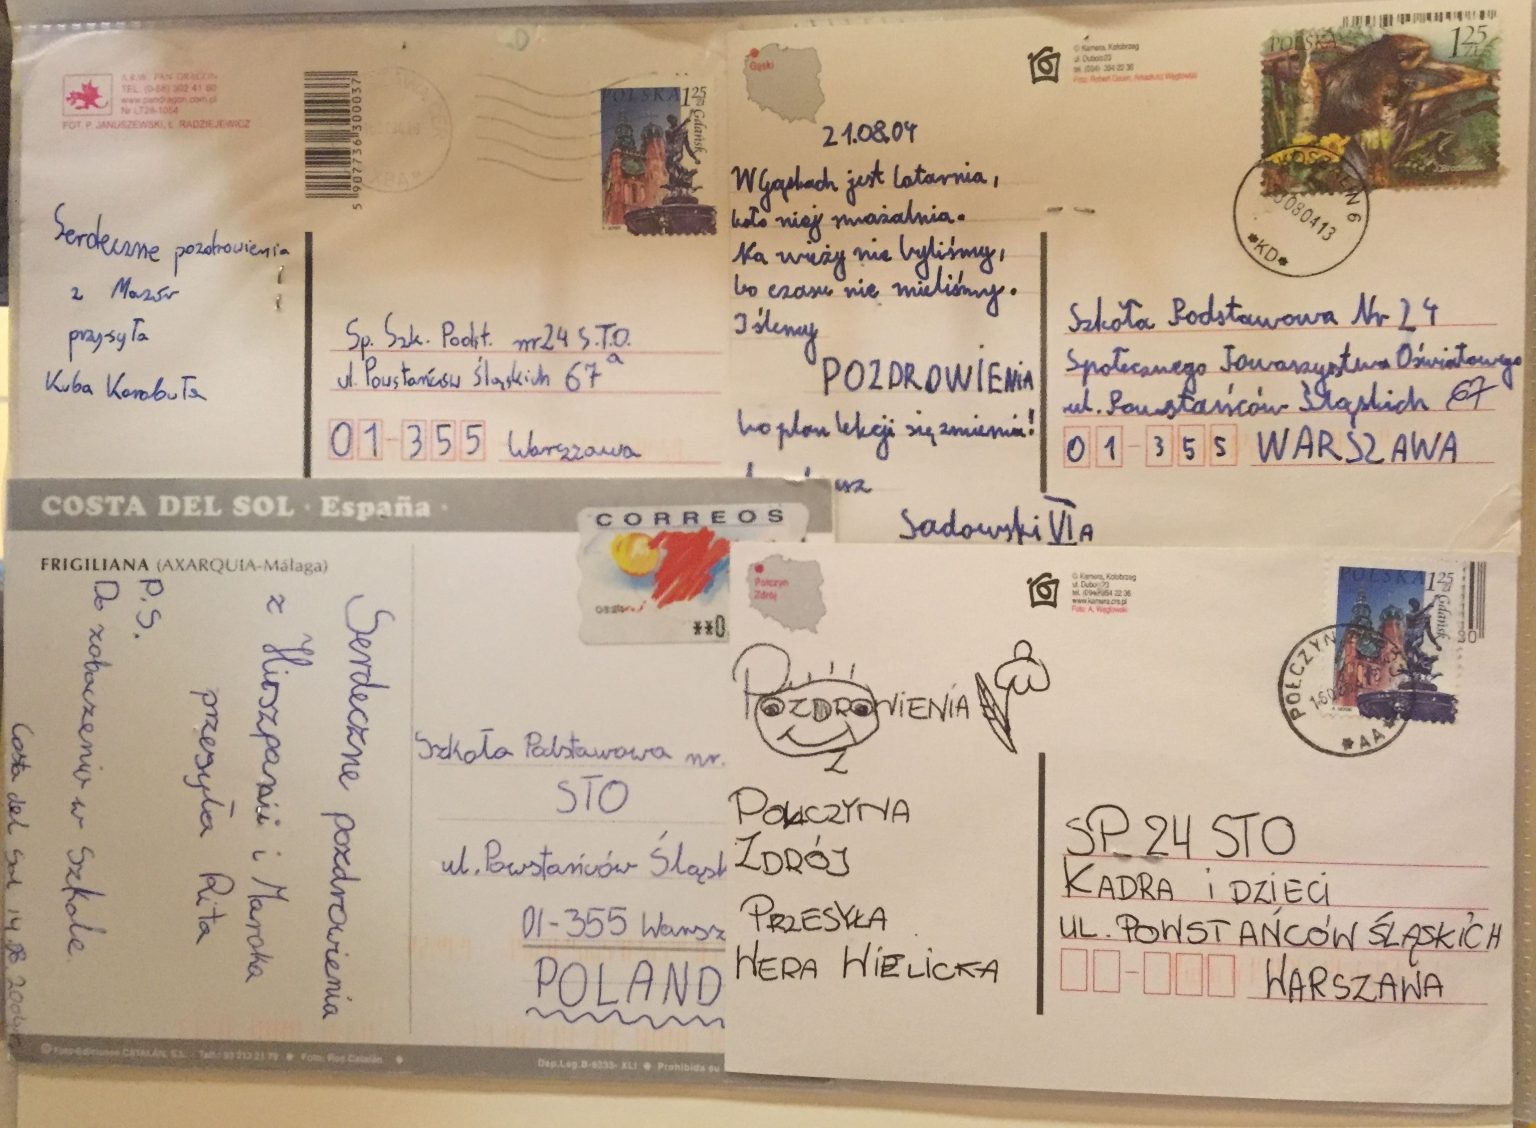 A.R.W. PAN DRAGON
www.pandragon.com.pl
FOT. P. JANUSZEWSKI, Ł. RADZIEJEWICZ
5 907736 300037
POLSKA 1 25 zł
Gdańsk
Serdeczne pozdrowienia
z Mazur
przysyła
Kuba Karabuła
Sp. Szk. Podst. nr 24 S.T.O.
ul. Powstańców Śląskich 67a
01-355 Warszawa
Gąski
© Kamera, Kołobrzeg
POLSKA 1 25 zł
21.08.04
W Gąskach jest latarnia,
koło niej smażalnia.
Na wieży nie byliśmy,
bo czasu nie mieliśmy.
I ślemy
POZDROWIENIA
bo plan lekcji się zmienia!
Sadowski VI A
KOSZALIN 6
080413
*KD*
Szkoła Podstawowa Nr 24
Społecznego Towarzystwa Oświatowego
ul. Powstańców Śląskich 67
01-355 WARSZAWA
COSTA DEL SOL · España ·
FRIGILIANA (AXARQUIA-Málaga)
CORREOS
**0
Serdeczne pozdrowienia
z Hiszpanii i Maroka
przesyła Rita
P.S.
Do zobaczenia w Szkole
Costa del Sol
Szkoła Podstawowa nr.
STO
ul. Powstańców Śląsk
01-355 Warsz
POLAND
Połczyn
Zdrój
© Kamera, Kołobrzeg
POLSKA 1 25 zł
Gdańsk
POŁCZYN
*AA*
POZDROWIENIA
Z
POŁCZYNA
ZDRÓJ
PRZESYŁA
WERA WIELICKA
SP 24 STO
KADRA i DZIECI
UL. POWSTAŃCÓW ŚLĄSKICH
WARSZAWA